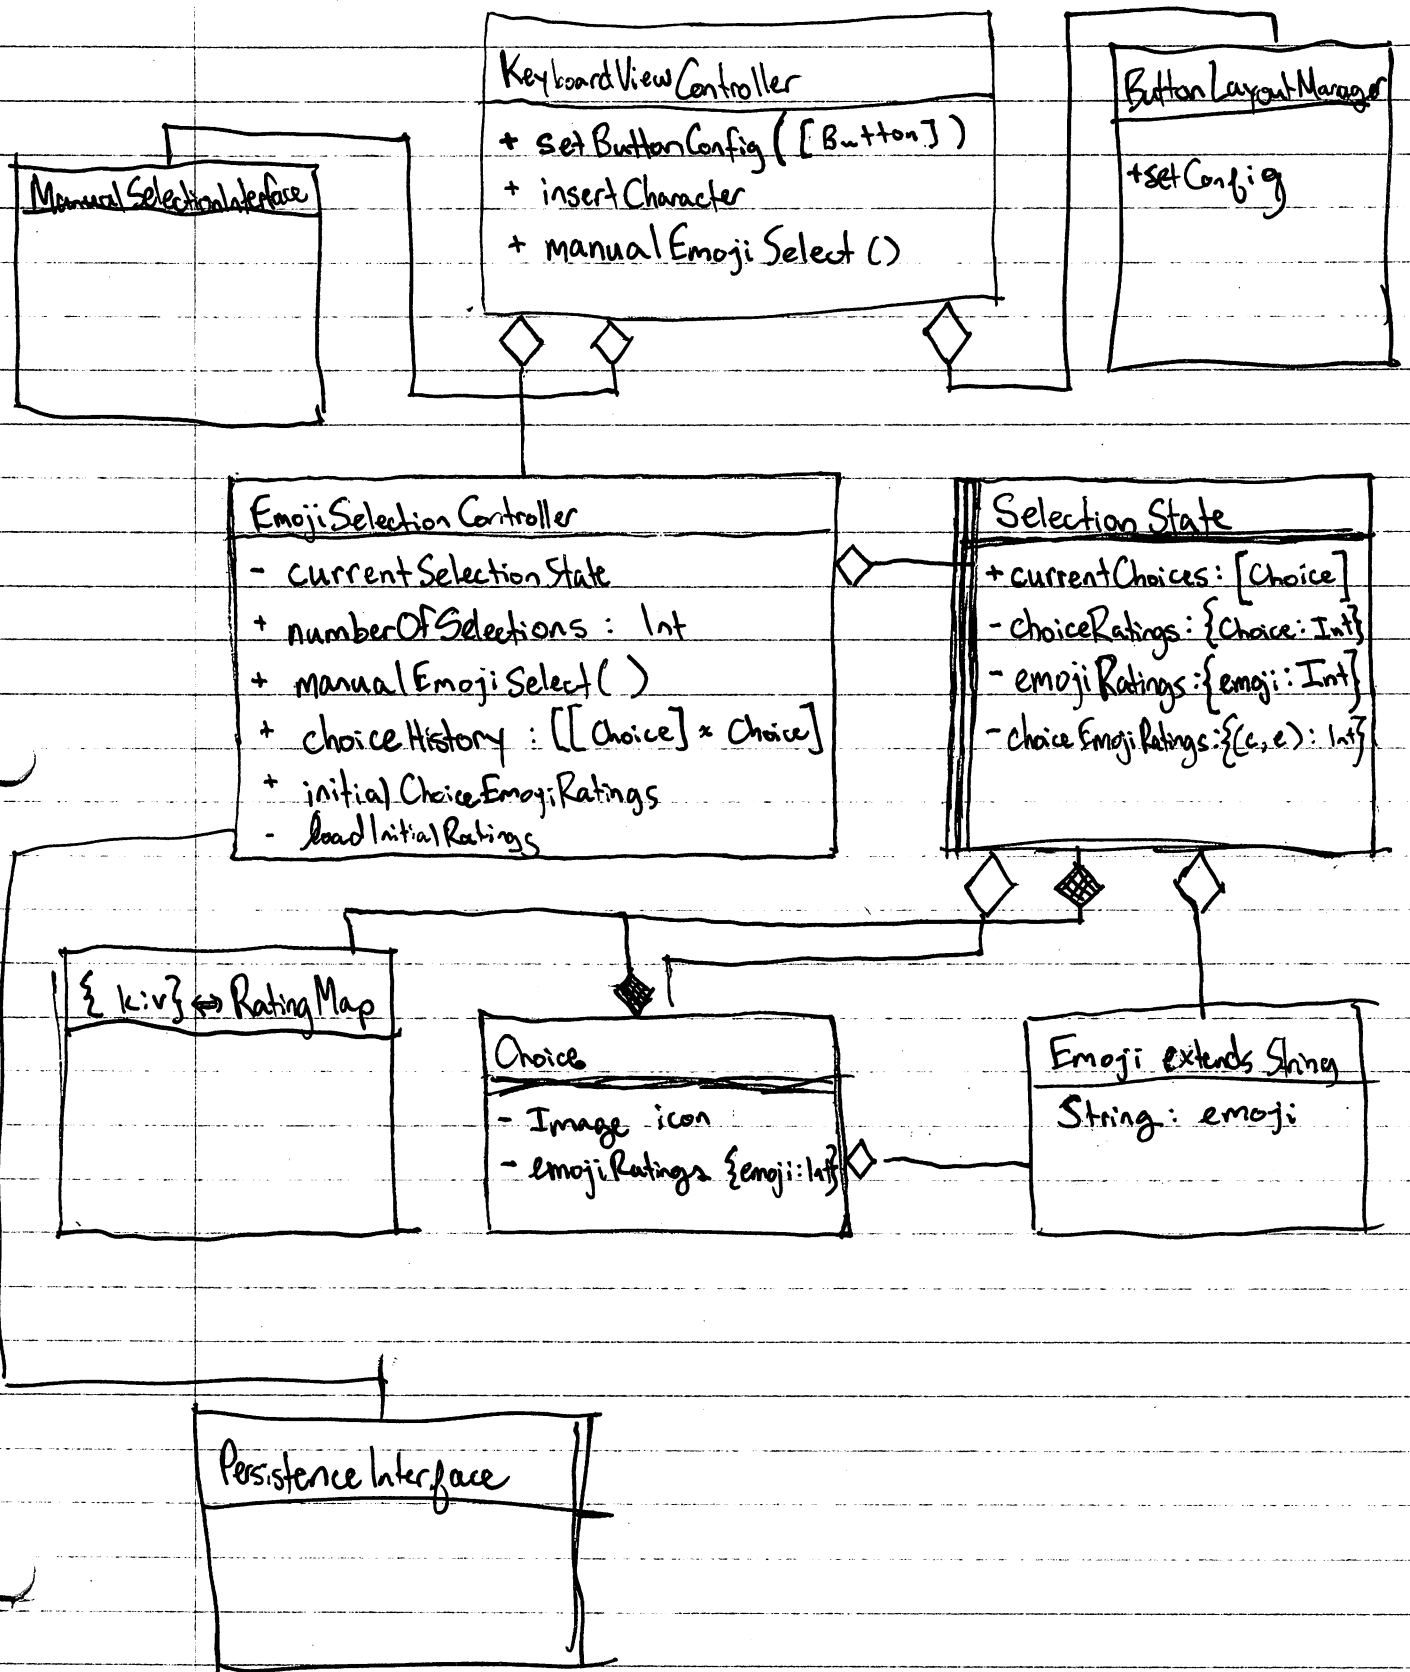 KeyboardViewController
+ setButtonConfig([Button])
+ insertCharacter
+ manualEmojiSelect()
ButtonLayoutManager
+setConfig
ManualSelectionInterface
EmojiSelectionController
- currentSelectionState
+ numberOfSelections : Int
+ manualEmojiSelect( )
+ choiceHistory : [[Choice] * Choice]
+ initialChoiceEmojiRatings
- loadInitialRatings
Selection State
+ currentChoices: [Choice]
- choiceRatings: {Choice: Int}
- emojiRatings: {emoji: Int}
- choiceEmojiRatings: {(c, e): Int}
{ k:v} ⇔ RatingMap
Choice
- Image icon
- emojiRatings {emoji: Int}
Emoji extends String
String: emoji
PersistenceInterface